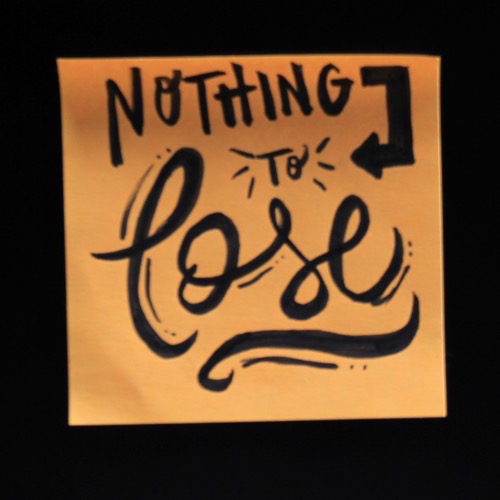 NOTHING
TO
lose